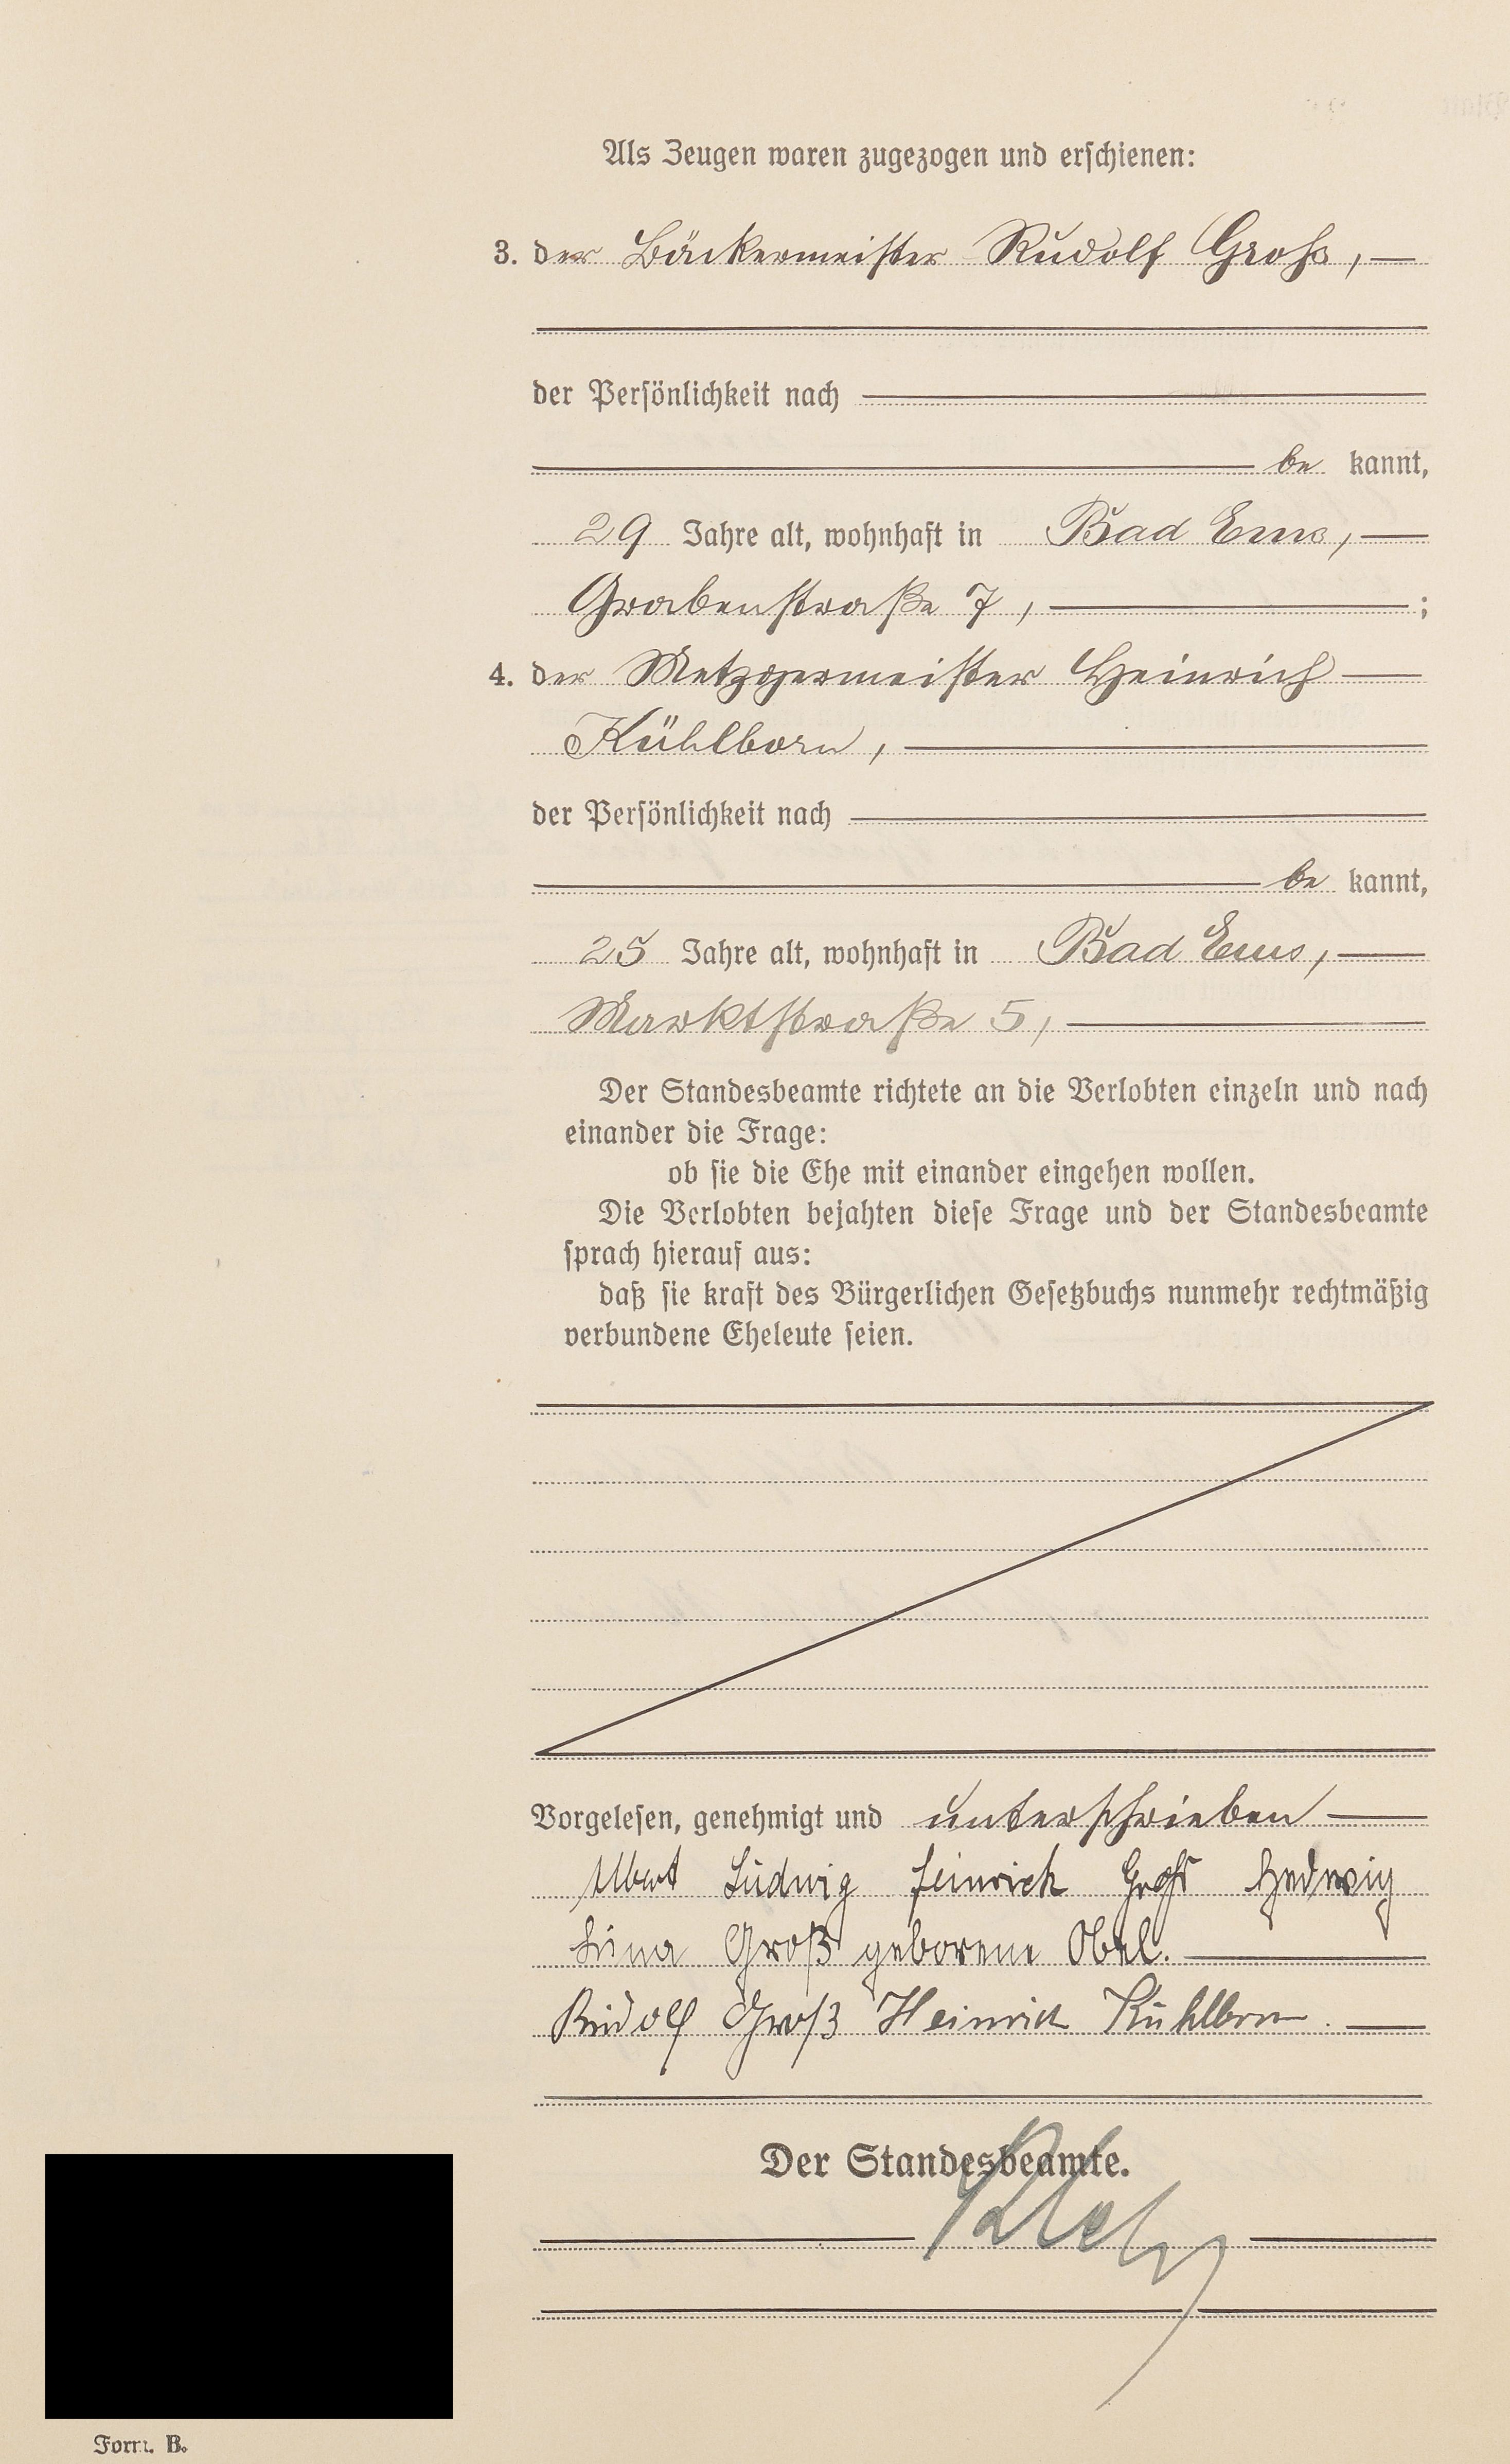 Als Zeugen waren zugezogen und erschienen:
3. der Bäckermeister Rudolf Groß, —
der Persönlichkeit nach
be kannt,
29 Jahre alt, wohnhaft in Bad Ems, —
Grabenstraße 7, — ;
4. der Metzgermeister Heinrich —
Kühlborn, —
der Persönlichkeit nach
be kannt,
25 Jahre alt, wohnhaft in Bad Ems, —
Marktstraße 5, —
Der Standesbeamte richtete an die Verlobten einzeln und nach
einander die Frage:
ob sie die Ehe mit einander eingehen wollen.
Die Verlobten bejahten diese Frage und der Standesbeamte
sprach hierauf aus:
daß sie kraft des Bürgerlichen Gesetzbuchs nunmehr rechtmäßig
verbundene Eheleute seien.
Vorgelesen, genehmigt und unterschrieben —
Albert Ludwig Heinrich Groß Hedwig
Lina Groß geborene Obel. —
Rudolf Groß Heinrich Kühlborn. —
Der Standesbeamte.
Form. B.